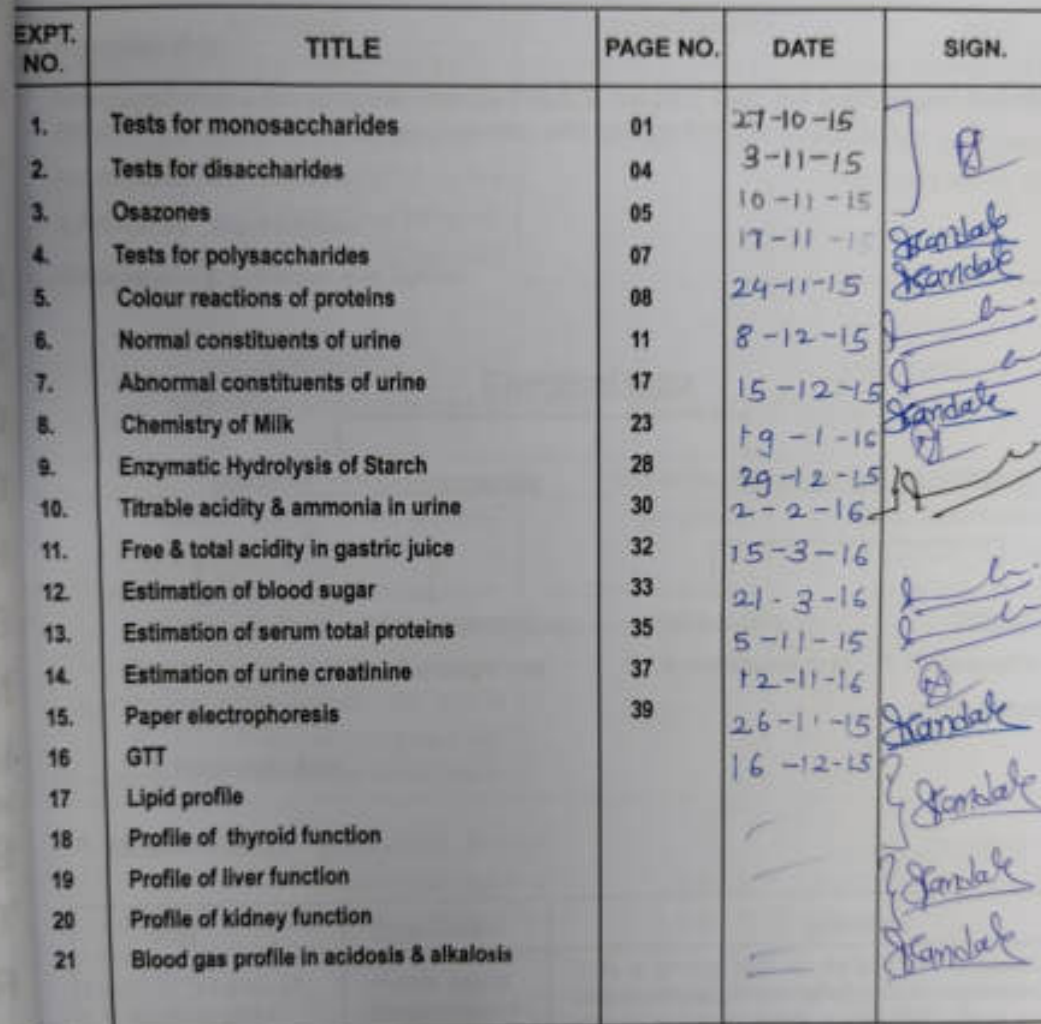 EXPT. NO. TITLE PAGE NO. DATE SIGN.
1. Tests for monosaccharides 01 27-10-15
2. Tests for disaccharides 04 3-11-15
3. Osazones 05 10-11-15
4. Tests for polysaccharides 07 17-11-15
5. Colour reactions of proteins 08 24-11-15
6. Normal constituents of urine 11 8-12-15
7. Abnormal constituents of urine 17 15-12-15
8. Chemistry of Milk 23 19-1-16
9. Enzymatic Hydrolysis of Starch 28 29-12-15
10. Titrable acidity & ammonia in urine 30 2-2-16
11. Free & total acidity in gastric juice 32 15-3-16
12. Estimation of blood sugar 33 21-3-16
13. Estimation of serum total proteins 35 5-11-15
14. Estimation of urine creatinine 37 12-11-16
15. Paper electrophoresis 39 26-11-15
16 GTT 16-12-15
17 Lipid profile
18 Profile of thyroid function
19 Profile of liver function
20 Profile of kidney function
21 Blood gas profile in acidosis & alkalosis